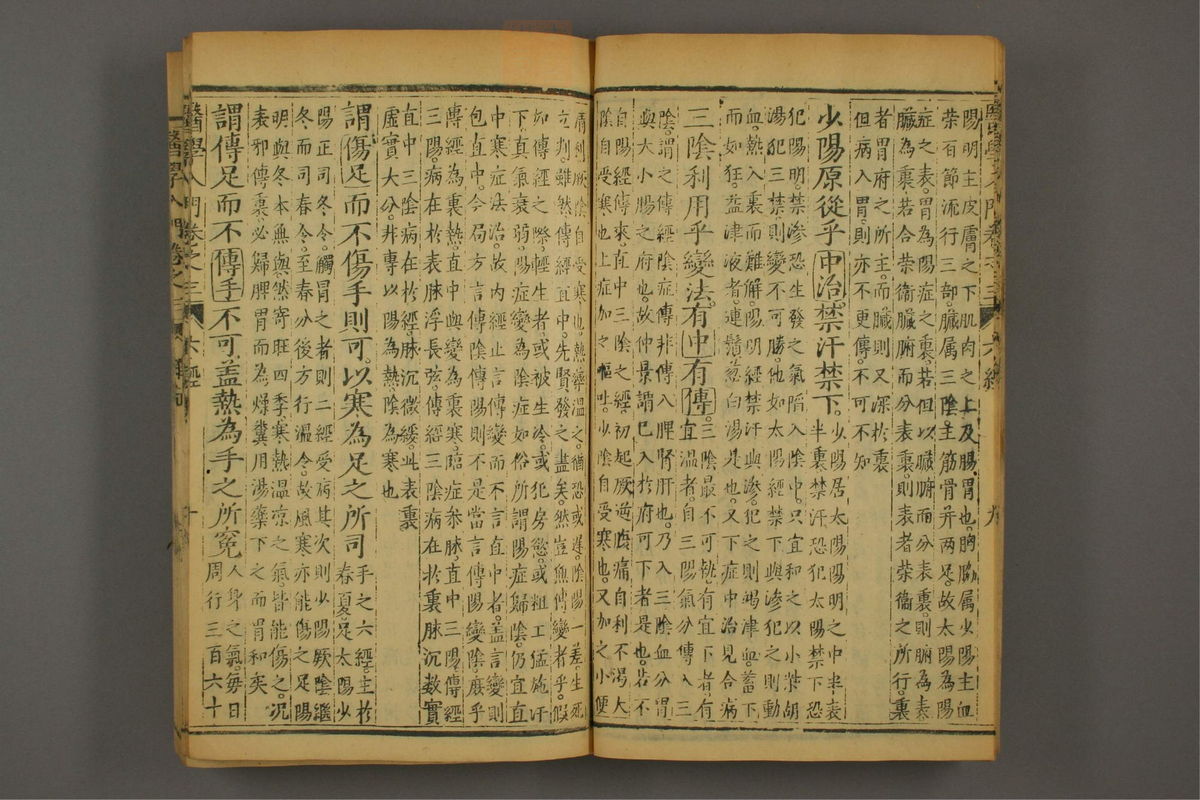 陽明主皮膚之下肌肉之上及腸胃也胸脇屬少陽主血
榮百節流行三部臟屬三陰主筋骨并兩足故太陽為陽
症之表胃為陽症之裏若但以臟腑而分表裏則腑為表
臟為裏若合榮衛臟腑而分表裏則表者榮衛之所行裏
者胃府之所主而臟則又深於裏
但病入胃則亦不更傳不可不知
少陽原從乎中治禁汗禁下少陽居太陽陽明之中半表
半裏禁汗恐犯太陽禁下恐
犯陽明禁滲恐生發之氣陷入陰中只宜和之以小柴胡
湯犯三禁則變不可勝他如太陽經禁下與滲犯之則動
血熱入裏而難解陽明經禁汗與滲犯之則竭津血蓄下
而如狂益津液者連鬚葱白湯是也又下症中治見合病
三陰利用乎變法有中有傳三陰最不可執有宜下者有
宜溫者自三陽氣分傳入三
陰謂之傳經陰症傳非傳入脾腎肝也乃入三陰血分胃
與大小腸之府也故仲景謂已入於府可下者是也若不
自陽經傳來直中三陰之經初起厥逆腹痛自利不渴大
陰自受寒也上症加之嘔吐少陰自受寒也又加之小便
清利厥陰自受寒也熱藥溫之猶恐或遲陰陽一差生死
立判雖然傳經直中先賢發之盡矣然豈無傳變者乎假
如傳經之際輕生者或被生冷或犯房慾或粗工猛施汗
下真氣衰弱陽症變為陰症如俗所謂陽症歸陰仍宜直
中寒症法治故內經止言傳變而不言直中者盖言變則
包直中今局方言傳陰傳陽則不是當言傳陽變陰庶乎
傳經為裏熱直中與變為裏寒臨症參脉直中三陽傳經
三陽病在於表脉浮長弦傳經三陰病在於裏脉沉数實
直中三陰病在於經脉沉微緩此表裏
虛實大分并專以陽為熱陰為寒也
謂傷足而不傷手則可以寒為足之所司手之六經主於
春夏足太陽少
陽正司冬令觸冒之者則二經受病其次則少陽厥陰繼
冬而司春令至春分後方行溫令故風寒亦能傷之足陽
明與冬本無與然寄旺四季寒熱溫凉之氣皆能傷之况
表邪傳裏必歸脾胃而為燥糞用湯藥下之而胃和矣
謂傳足而不傳手不可盖熱為手之所冤人身之氣每日
周行三百六十